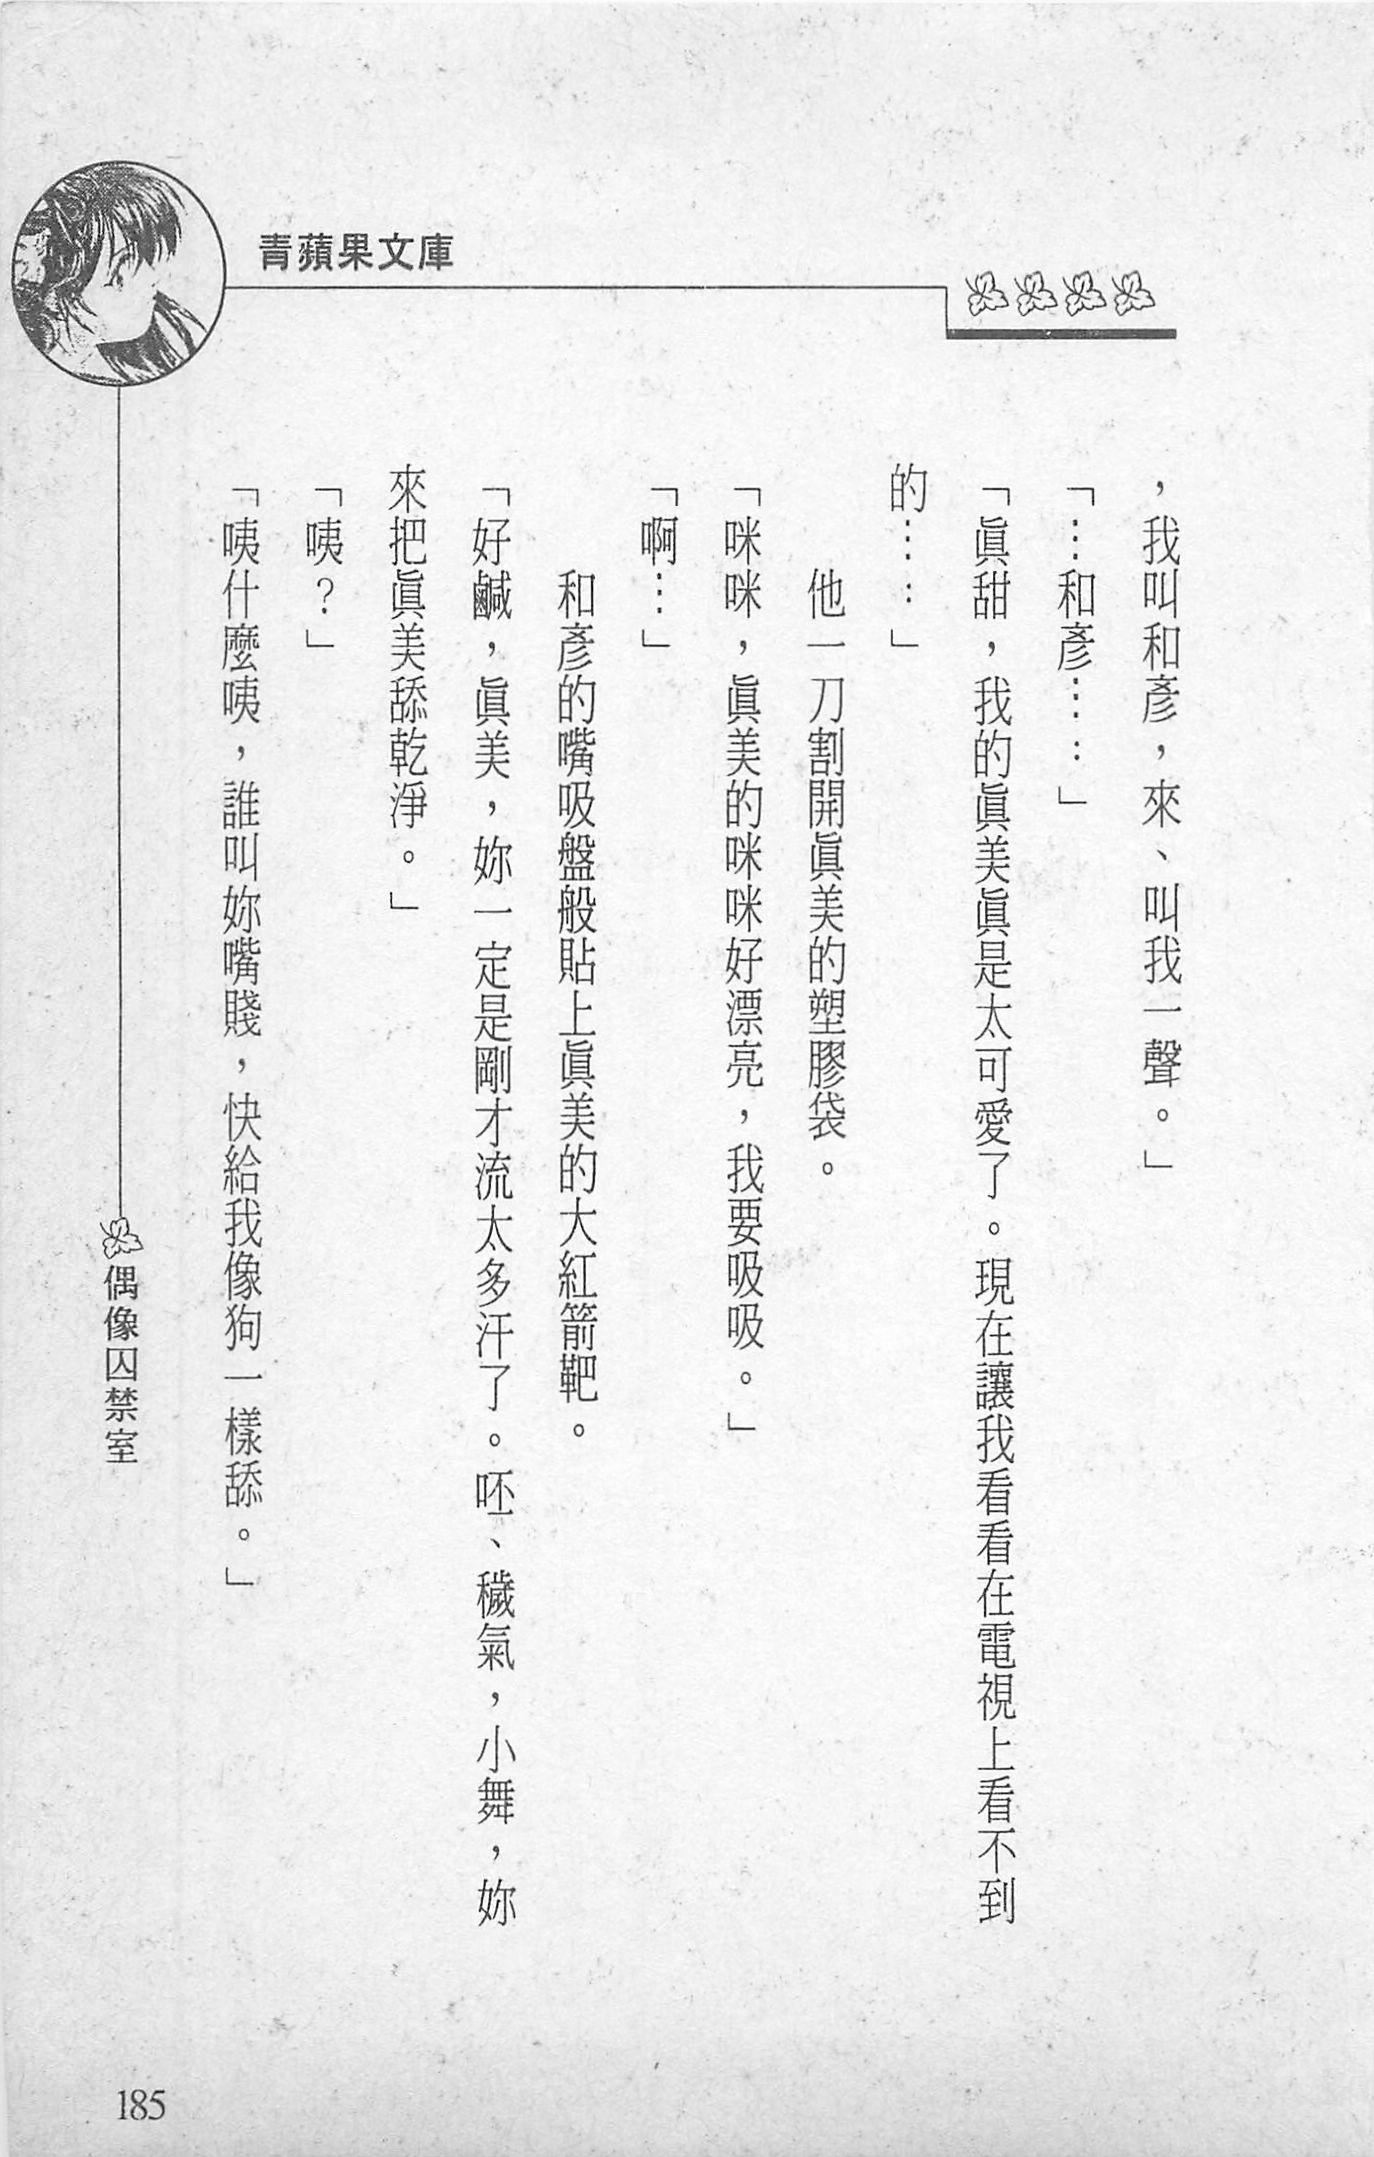 青蘋果文庫
，我叫和彥，來、叫我一聲。」
「…和彥……」
「眞甜，我的眞美眞是太可愛了。現在讓我看看在電視上看不到
的……」
他一刀割開眞美的塑膠袋。
「咪咪，眞美的咪咪好漂亮，我要吸吸。」
「啊…」
和彥的嘴吸盤般貼上眞美的大紅箭靶。
「好鹹，眞美，妳一定是剛才流太多汗了。呸、穢氣，小舞，妳
來把眞美舔乾淨。」
「咦？」
「咦什麼咦，誰叫妳嘴賤，快給我像狗一樣舔。」
偶像囚禁室
185